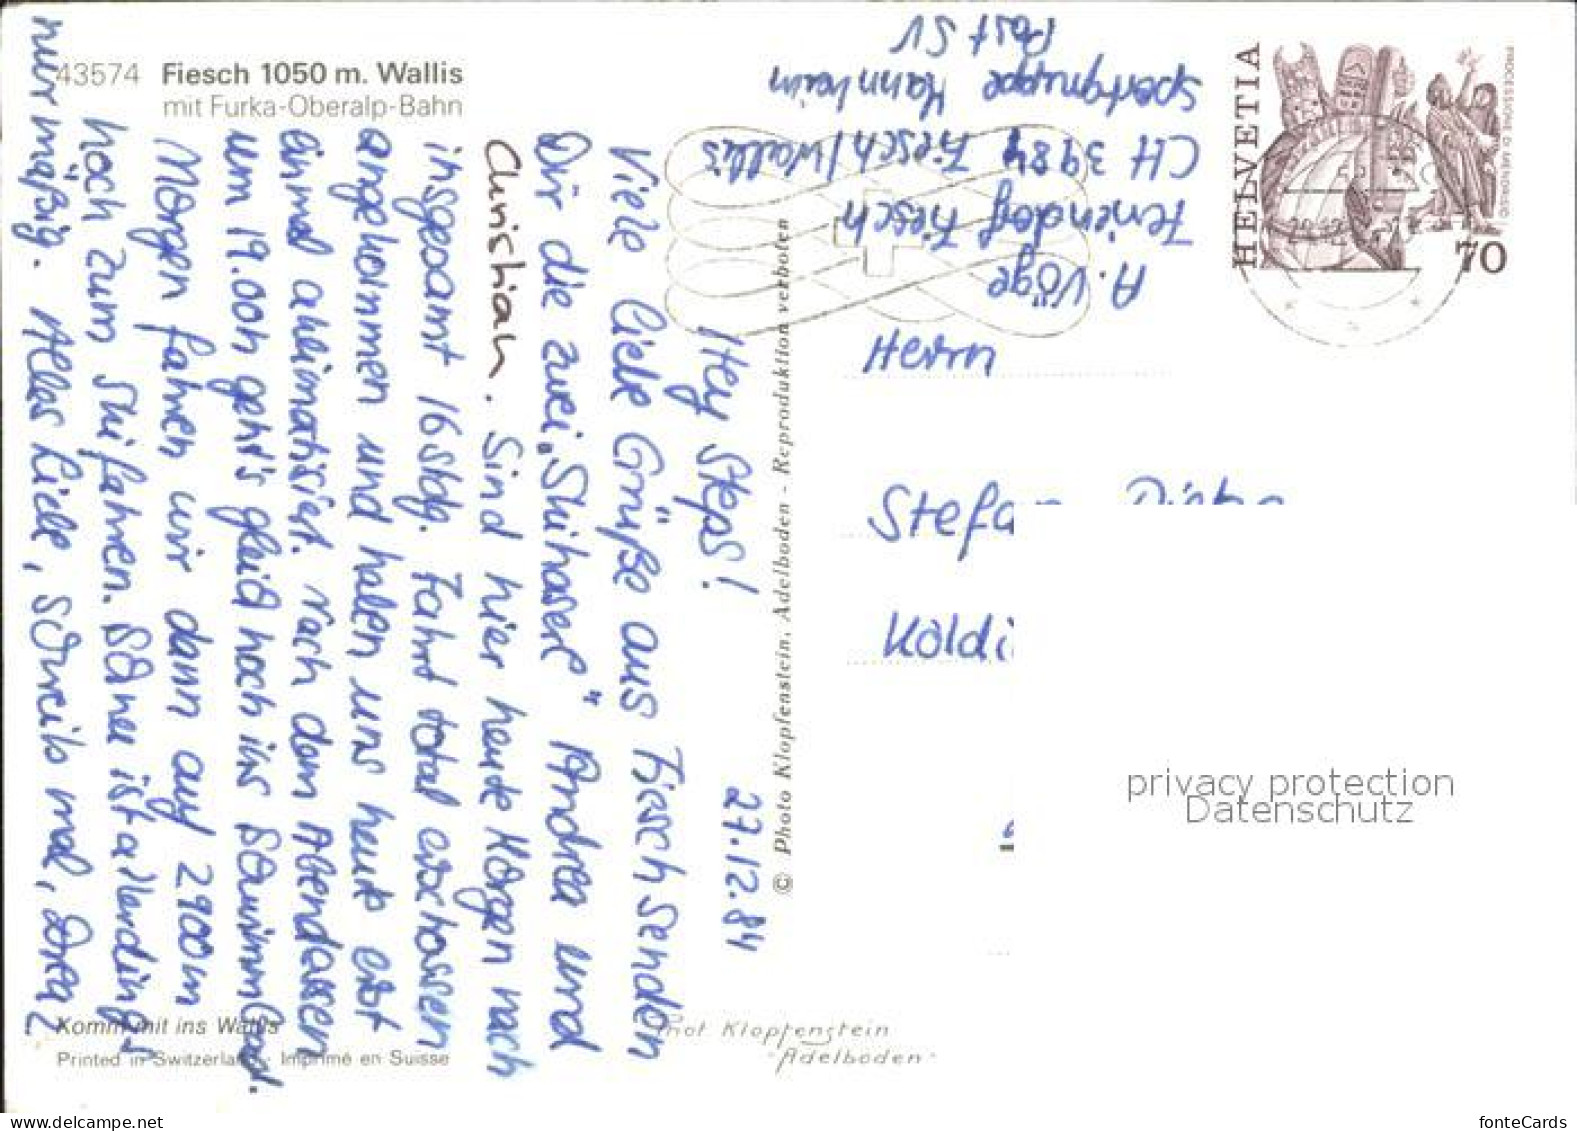 43574 Fiesch 1050 m. Wallis
mit Furka-Oberalp-Bahn
27.12.84
Hey Steps!
Viele liebe Grüße aus Fiesch senden
Dir die zwei „Skihaserl" Andrea und
Christian. Sind hier heute Morgen nach
insgesamt 16 stdg. Fahrt total erschossen
angekommen und haben uns heute erst
einmal aklimatisiert. Nach dem Abendessen
um 19.00h geht's gleich noch ins Schwimmbad.
Morgen fahren wir dann auf 2900m
hoch zum Skifahren. Schnee ist allerdings
nur mäßig. Alles Liebe, schreib mal, Drea
Komm mit ins Wallis
Printed in Switzerland - Imprimé en Suisse
© Photo Klopfenstein, Adelboden - Reproduktion verboten
Phot Klopfenstein
"Adelboden"
A. Vöge
Feriendorf Fiesch
CH 3984 Fiesch/Wallis
Sportgruppe Mannheim
Post SV
HELVETIA
PROCESSIONE DI MENDRISIO
70
Herrn
Stefa
Koldi
privacy protection
Datenschutz
www.delcampe.net
fonteCards